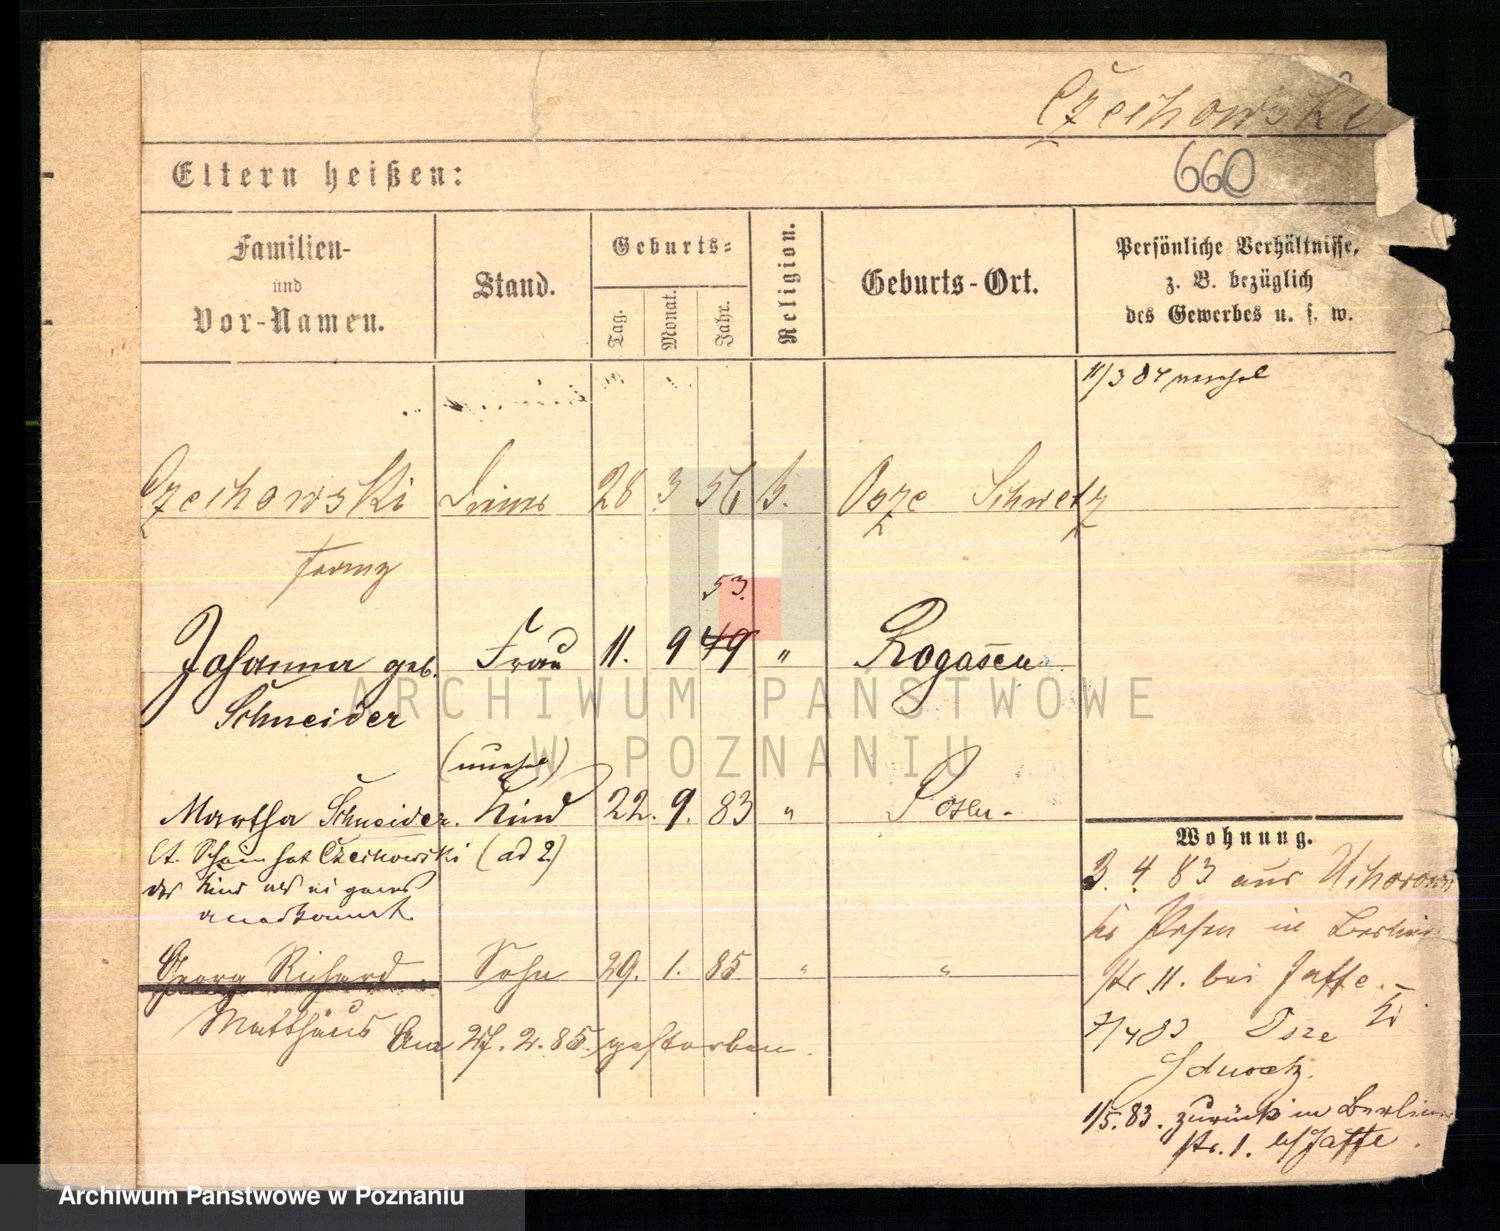 Czechowski
660
Eltern heißen:
Familien-
und
Vor-Namen.
Stand.
Geburts-
Tag.
Monat.
Jahr.
Religion.
Geburts-Ort.
Persönliche Verhältnisse,
z. B. bezüglich
des Gewerbes u. s. w.
11/3 84
Czechowski 28 3 56 k. Osze Schwetz
Franz
53.
Johanna geb. Frau 11. 9 49 " Rogasen
Schneider
(unehel)
Martha Schneider. Kind 22. 9. 83 " Posen.
lt. Schein hat Czechowski (ad 2)
das Kind als eigenes
anerkannt
Georg Richard Sohn 29. 1. 85 " "
Matthäus Am 27. 2. 85. gestorben.
Wohnung.
3. 4. 83 aus
in Berliner
str 11. bei Jaffe.
7/4 83 Osze
Schwetz.
1/5. 83. zurück in Berliner
str. 1. bei Jaffe.
ARCHIWUM PAŃSTWOWE
W POZNANIU
Archiwum Państwowe w Poznaniu